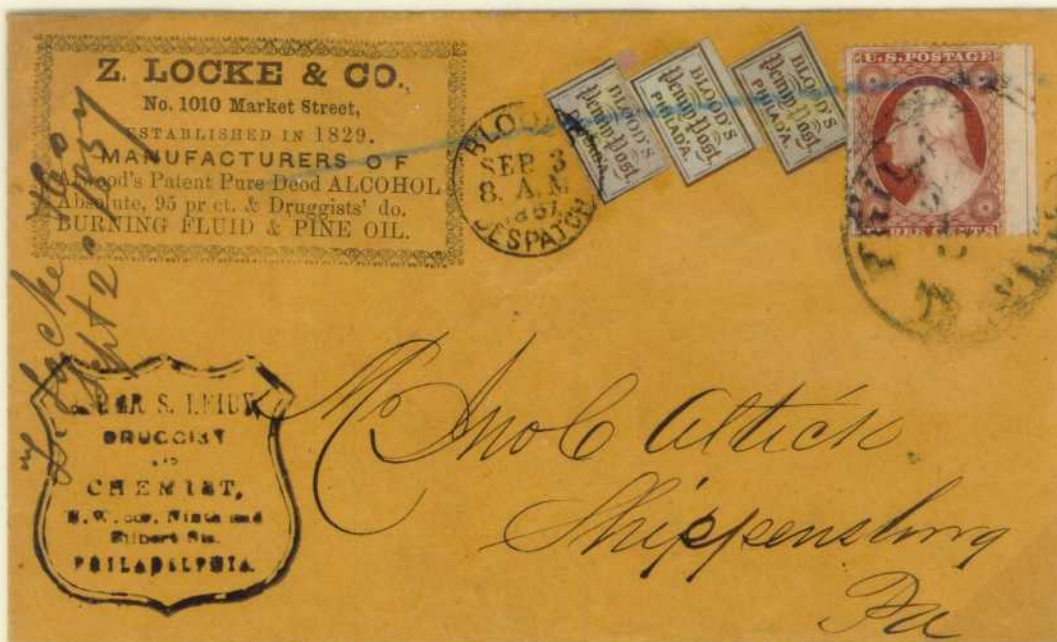 Z. LOCKE & CO.,
No. 1010 Market Street,
ESTABLISHED IN 1829.
MANUFACTURERS OF
Atwood's Patent Pure Deod ALCOHOL
Absolute, 95 pr ct. & Druggists' do.
BURNING FLUID & PINE OIL.
Locke
Sept 2
BLOOD'S
SEP 3
8. A.M
1857
DESPATCH
BLOOD'S
Penny Post,
PHILAD'A.
BLOOD'S
Penny Post,
PHILAD'A.
BLOOD'S
Penny Post,
PHILAD'A.
U.S. POSTAGE
THREE CENTS
PHILA
S. LEIDY,
DRUGGIST
AND
CHEMIST,
N.W. cor. Ninth and
Filbert Sts.
PHILADELPHIA.
Jno C Altick
Shippensburg
Pa